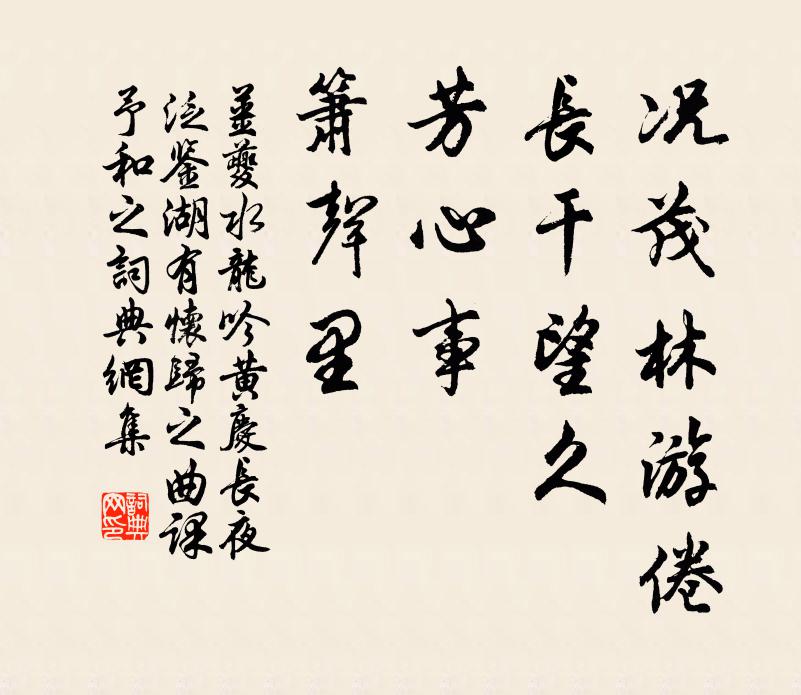 况茂林游倦
長干望久
芳心事
簫聲里
薑夔水龍吟黄慶長夜
泛鑒湖有懷歸之曲課
予和之詞典網集
詞典网印